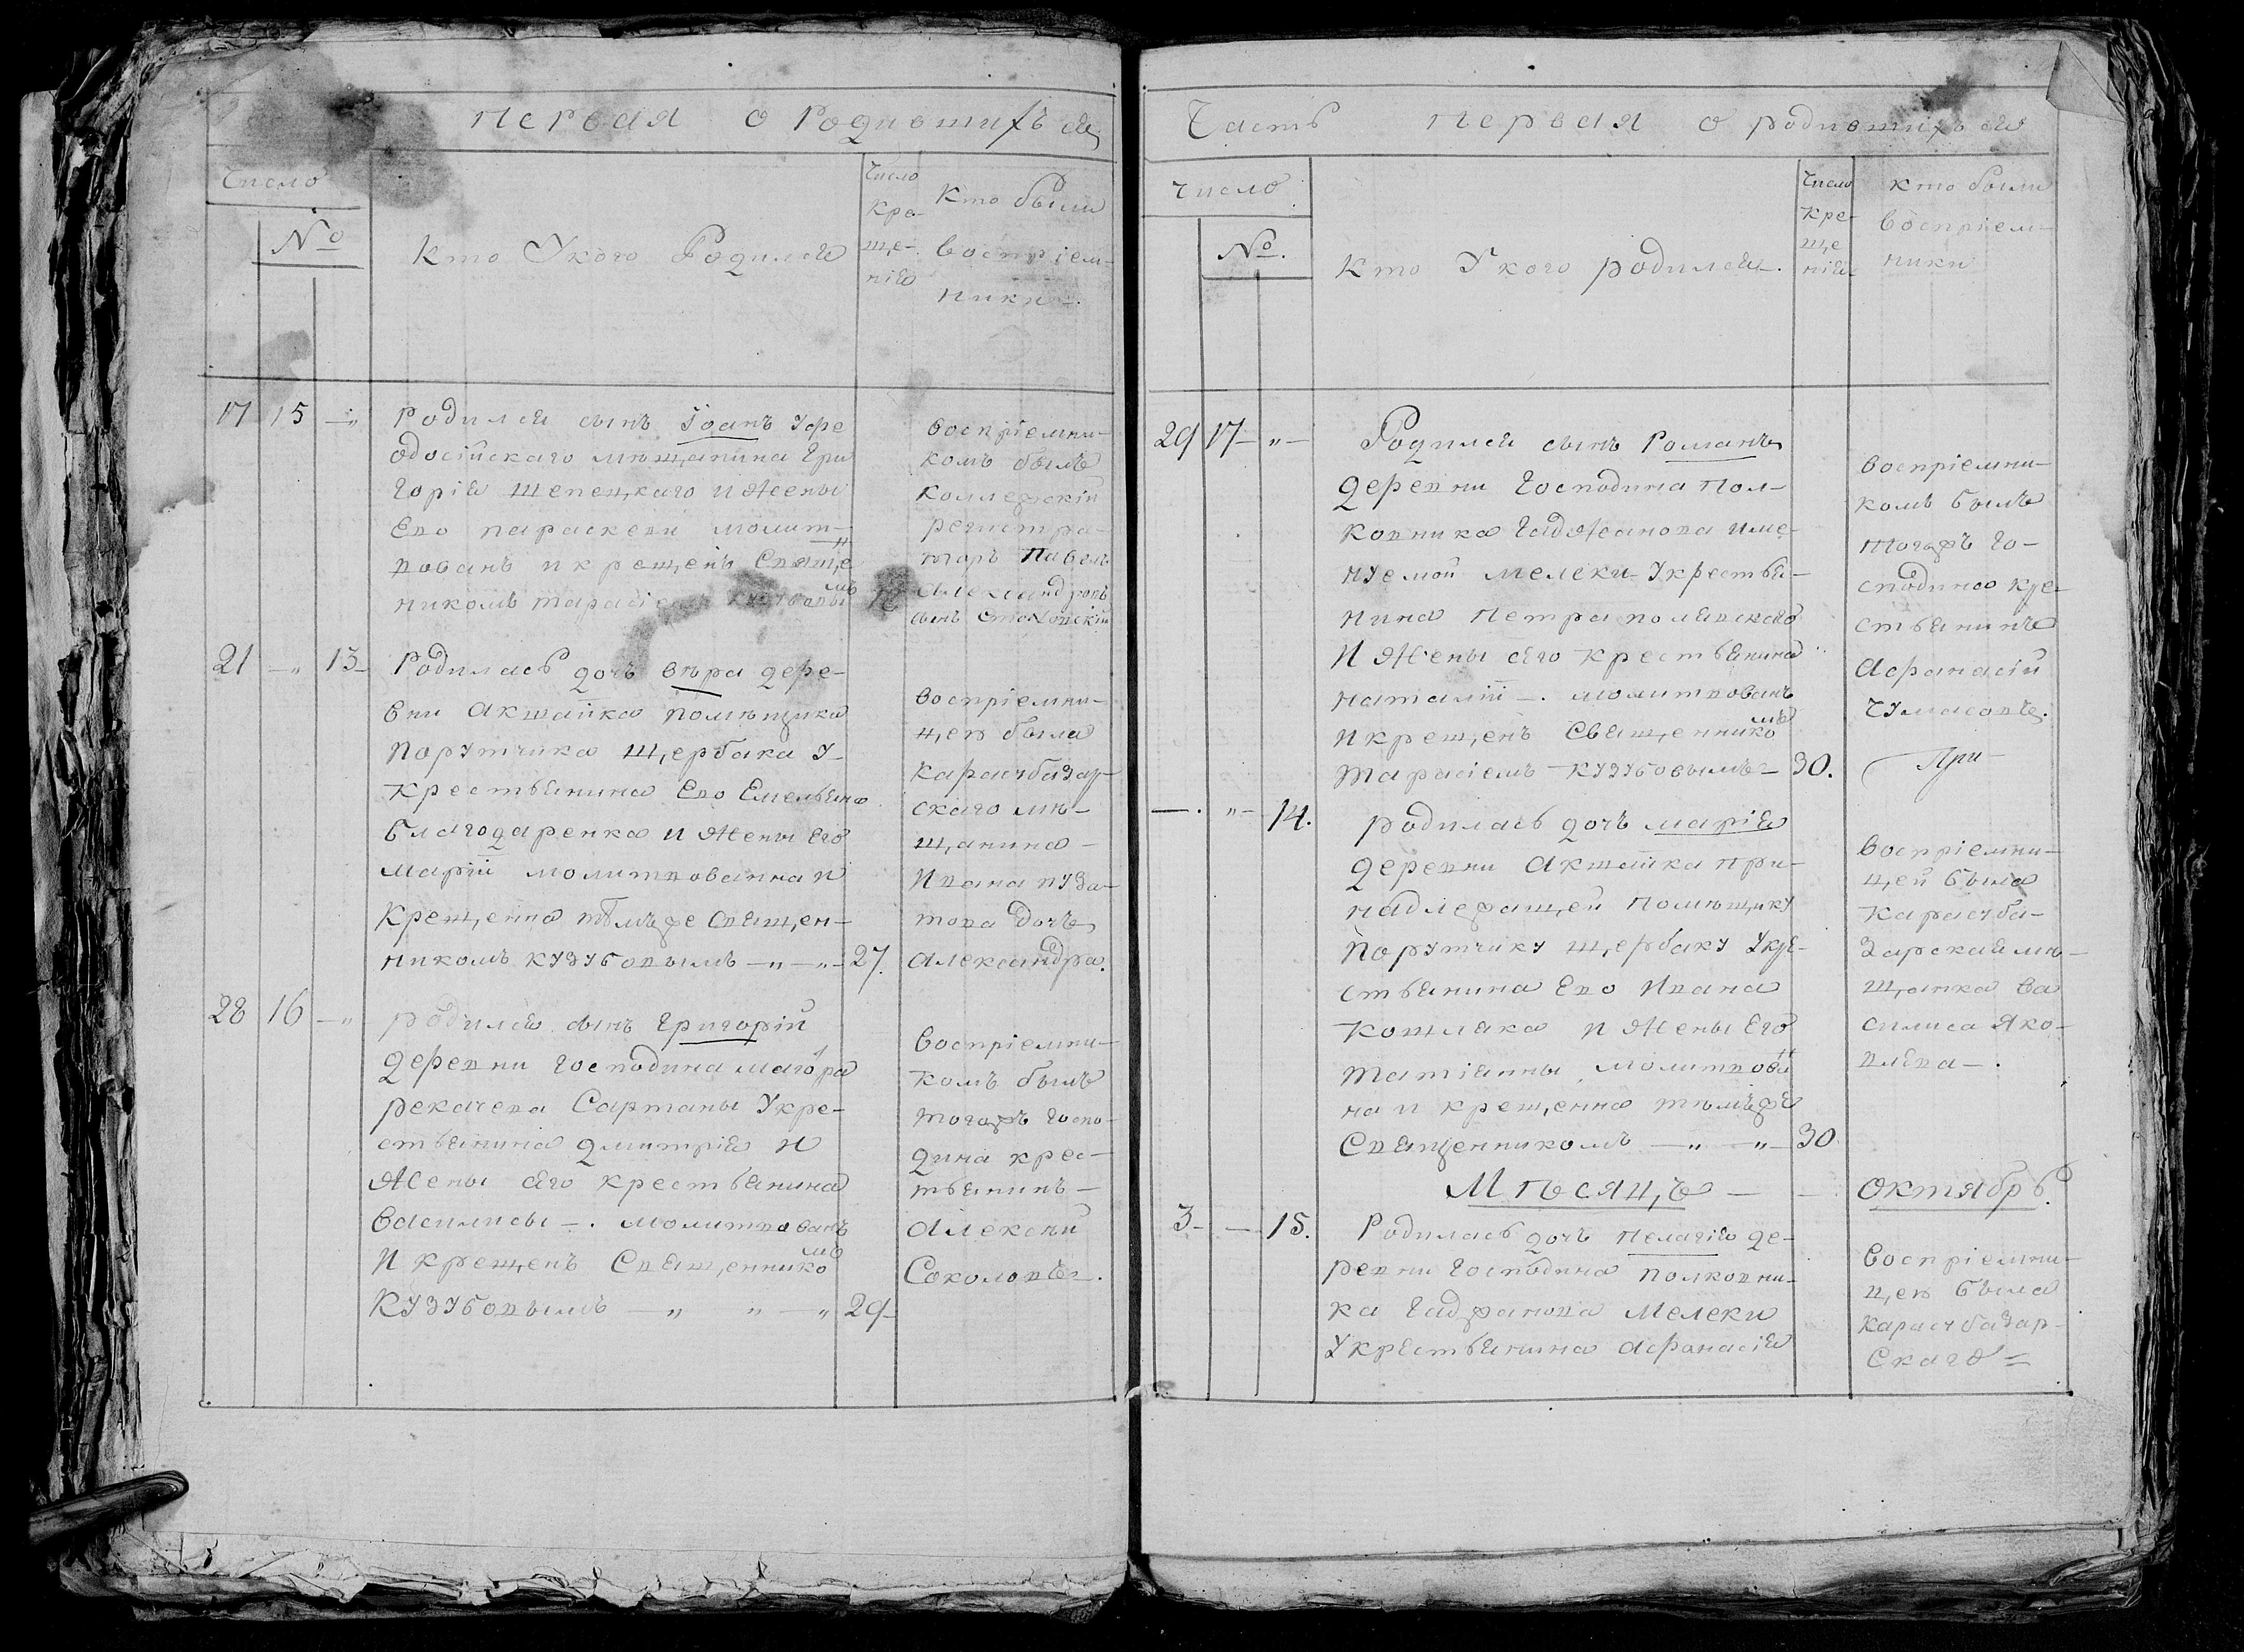 первая о Родившихъ ся
Число
№
Кто Укого Родился
Число
Кре-
ще-
нія
Кто были
воспріем-
ники.
17 15 —„ Родился сынъ Іоанъ Уфе
одосійскаго мѣщанина Гри
горія Щепецкаго и Жены
Ево параскеви молит-
вованъ и крещенъ Свяще
н
никомъ тарасіе
мъ
воспріемни-
комъ былъ
коллежскій
регистра-
торъ Павелъ
Александровъ
сынъ
21 —„ 13 — Родилась дочъ вѣра дере-
вни Акшайка помѣщика
порутчика Щербака У-
Крестьянина Ево Емельяна
благодаренка и Жены Его
маріи молитвованна и
Крещенна тѣмъже Священ-
никомъ Кузубовымъ —„—„— 27.
воспріемни-
цею была
карасубазар-
скаго мѣ-
щанина —
Ивана пуза-
това дочъ
Александра.
28 16 —„ родился сынъ григорій
деревни господина маіора
рекачева Сартаны Укре-
стьянина дмитрія и
Жены его крестьянина
василисы —. молитвованъ
и крещенъ Священнико
мъ
Кузубовымъ —„ „ —„ 29 —
воспріемни-
комъ былъ
тогожъ госпо-
дина крес-
тьянинъ —
Алексѣй
Соколовъ.
Часть первая о родившихъ ся
Число
№.
Кто Укого родился.
Число
Кре-
ще
нія
кто были
воспріем-
ники
29 17 — „— Родился сынъ Романъ
деревни господина пол-
ковника гаджанова име-
нуемой мелеки Укрестья-
нина петра полевского
и Жены его крестьянина
наталіи —. молитвованъ
и крещенъ Священнико
мъ
тарасіемъ Кузубовымъ — 30.
воспріемни-
комъ былъ
тогожъ го-
сподина кре-
стьянинъ
Афанасій
чумасовъ.
При
—. „— 14. родилась дочъ марія
деревни Акшайка при-
надлежащей помѣщику
порутчику щербаку Укре-
стьянина Ево Ивана
Кошлака и Жены Его
татіанны молитвова
н
на и крещенна тѣмъже
Священникомъ —„ —„— 30.
воспріемни-
цей была
карасуба-
зарская мѣ-
щанка ва
силиса Яко-
влева —.
Мѣсяцъ — — Октябрь.
3 — — 15. Родилась дочъ пелагія де-
ревни господина полковни-
ка гаджанова мелеки
Укрестьянина Афанасія
воспріемни-
цею была
карасубазар-
скаго =